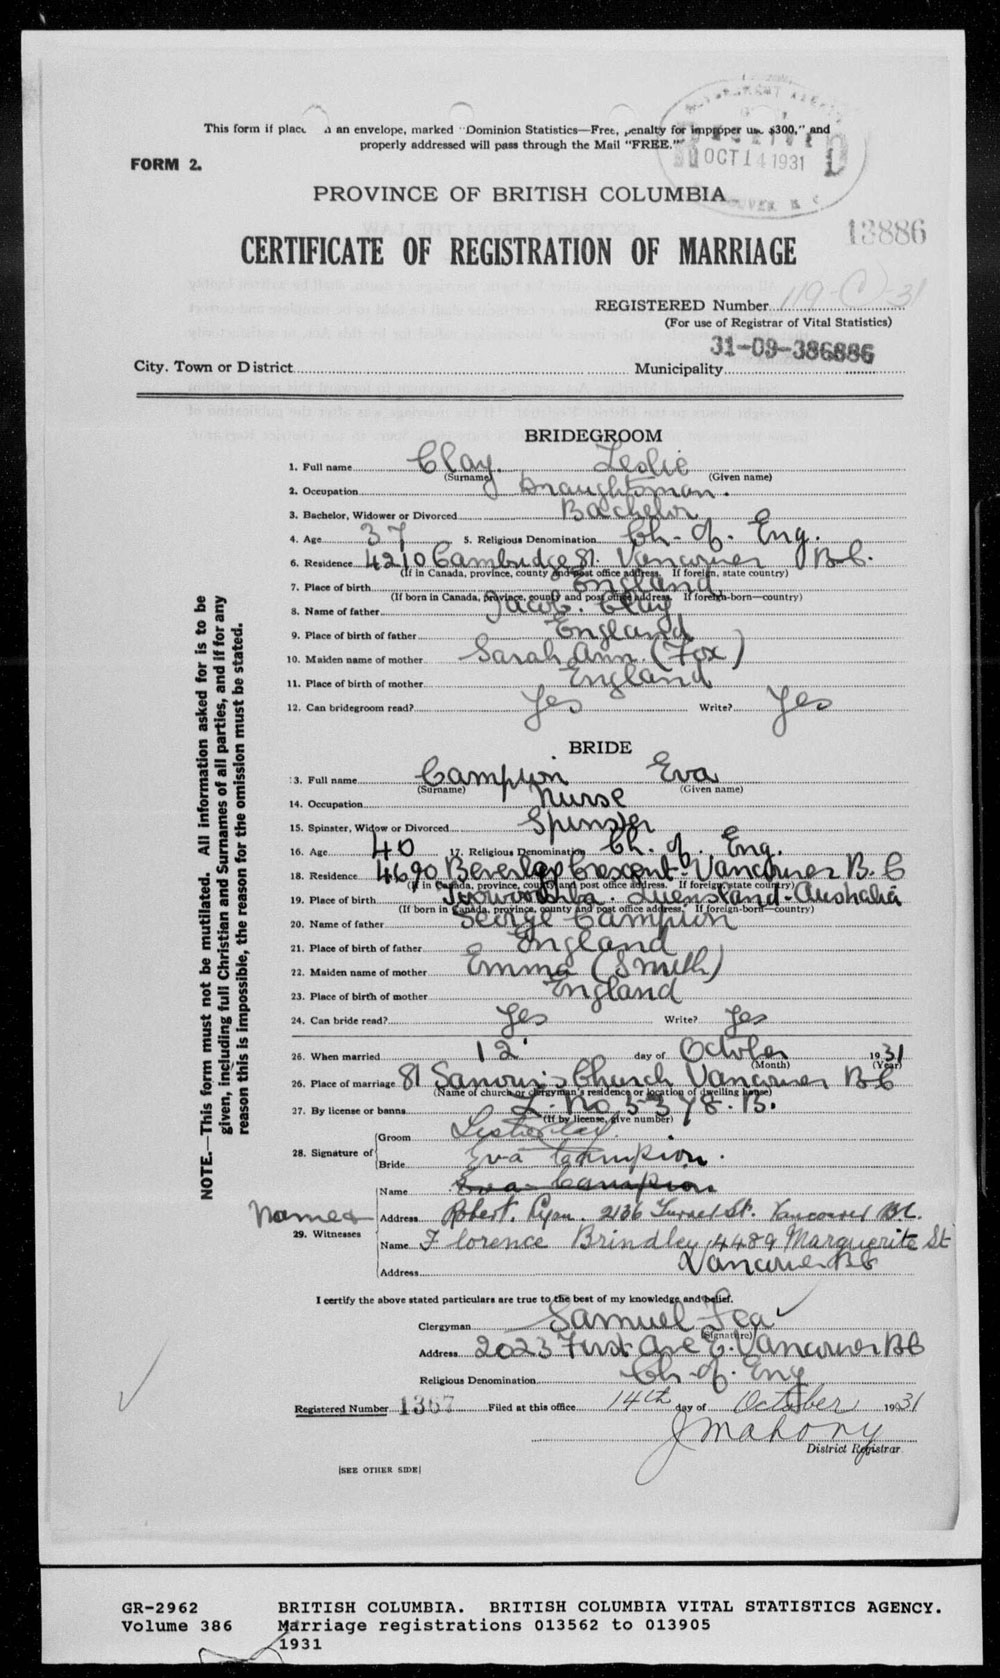 This form if an envelope, marked "Dominion Statistics—Free, penalty for improper use $300," and
properly addressed will pass through the Mail "FREE."
OCT 14 1931
FORM 2.
PROVINCE OF BRITISH COLUMBIA
13886
CERTIFICATE OF REGISTRATION OF MARRIAGE
REGISTERED Number 119-C-31
(For use of Registrar of Vital Statistics)
31-09-386886
City. Town or District Municipality
BRIDEGROOM
1. Full name Clay Leslie
(Surname) (Given name)
2. Occupation Draughtsman.
3. Bachelor, Widower or Divorced Bachelor
4. Age 37 5. Religious Denomination Ch. of. Eng.
6. Residence 4210 Cambridge St. Vancouver B.C.
(If in Canada, province, county and post office address. If foreign, state country)
7. Place of birth England
(If born in Canada, province, county and post office address. If foreign-born—country)
8. Name of father Jacob. Clay
9. Place of birth of father England
10. Maiden name of mother Sarah Ann (Fox)
11. Place of birth of mother England
12. Can bridegroom read? Yes Write? Yes
BRIDE
13. Full name Campion Eva
(Surname) (Given name)
14. Occupation Nurse
15. Spinster, Widow or Divorced Spinster
16. Age 40 17. Religious Denomination Ch. of. Eng.
18. Residence 4690 Beverley Crescent. Vancouver B.C
(If in Canada, province, county and post office address. If foreign, state country)
19. Place of birth Toowoomba. Queensland-Australia
(If born in Canada, province, county and post office address. If foreign-born—country)
20. Name of father George Campion
21. Place of birth of father England
22. Maiden name of mother Emma (Smith)
23. Place of birth of mother England
24. Can bride read? Yes Write? Yes
26. When married 12 day of October 1931
(Month) (Year)
26. Place of marriage St Saviour's Church Vancouver BC
(Name of church or clergyman's residence or location of dwelling house)
27. By license or banns L. No. 5378. B.
(If by license, give number)
28. Signature of Groom Leslie Clay.
Bride Eva Campion.
Name Eva Campion
Names Address Robert. Ryan. 2136 St. Vancouver B.C.
29. Witnesses
Name Florence Brindley, 4489 Marguerite St
Address Vancouver BC
I certify the above stated particulars are true to the best of my knowledge and belief.
Clergyman Samuel Fea
(Signature)
Address 2023 First Ave E. Vancouver BC
Religious Denomination Ch. of. Eng
Registered Number 1367 Filed at this office 14th day of October 1931
J Mahony
District Registrar
[SEE OTHER SIDE]
NOTE.—This form must not be mutilated. All information asked for is to be
given, including full Christian and Surnames of all parties, and if for any
reason this is impossible, the reason for the omission must be stated.
GR-2962 BRITISH COLUMBIA. BRITISH COLUMBIA VITAL STATISTICS AGENCY.
Volume 386 Marriage registrations 013562 to 013905
1931